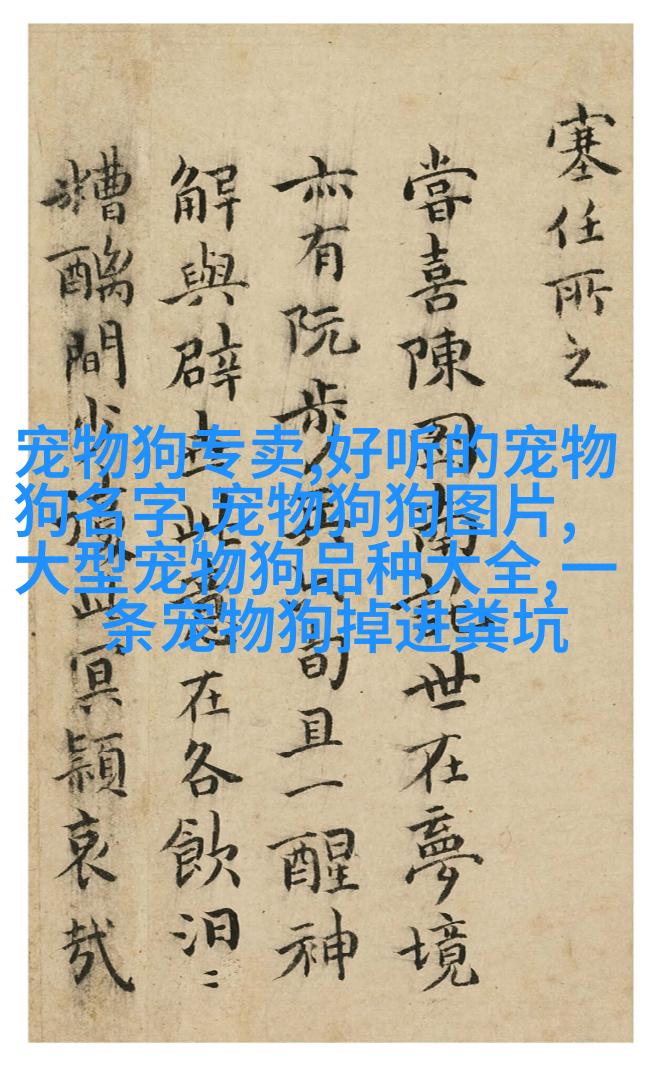 塞任所之
嘗喜陳圖南世在夢境
亦有阮步兵旬且一醒神
解與辟此意在各飲汩〻
糟醨間少冥穎哀哉
宠物狗专卖,好听的宠物
狗名字,宠物狗狗图片,
大型宠物狗品种大全,一
条宠物狗掉进粪坑